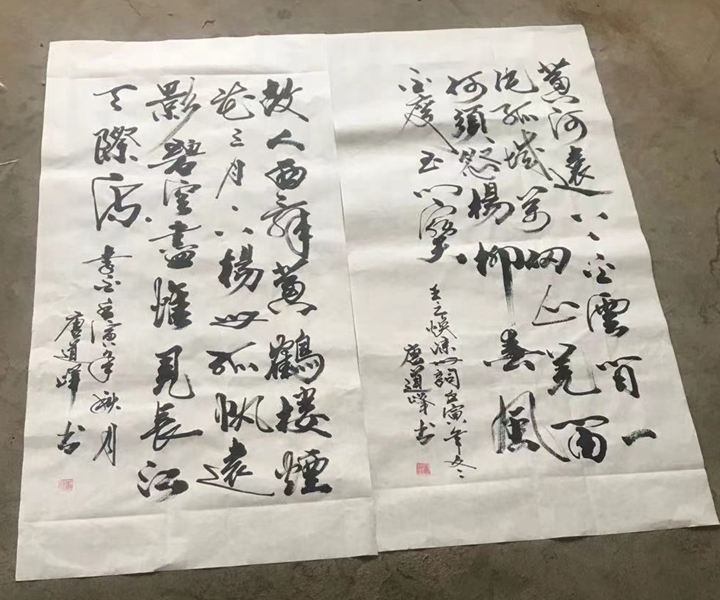 黄河遠上白雲間一
片孤城萬仞山羌笛
何須怨楊柳春風
不度玉門關
王之渙凉州詞壬寅年冬
唐道峰书
故人西辞黄鶴樓煙
花三月下楊州孤帆遠
影碧空盡惟見長江
天際流
李白壬寅年秋月
唐道峰书